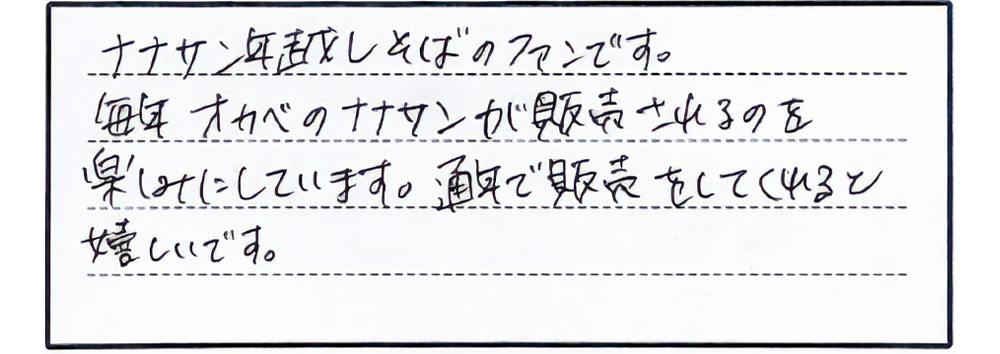 ナナサン年越しそばのファンです。
毎年 オカベのナナサンが販売されるのを
楽しみにしています。通年で販売をしてくれると
嬉しいです。